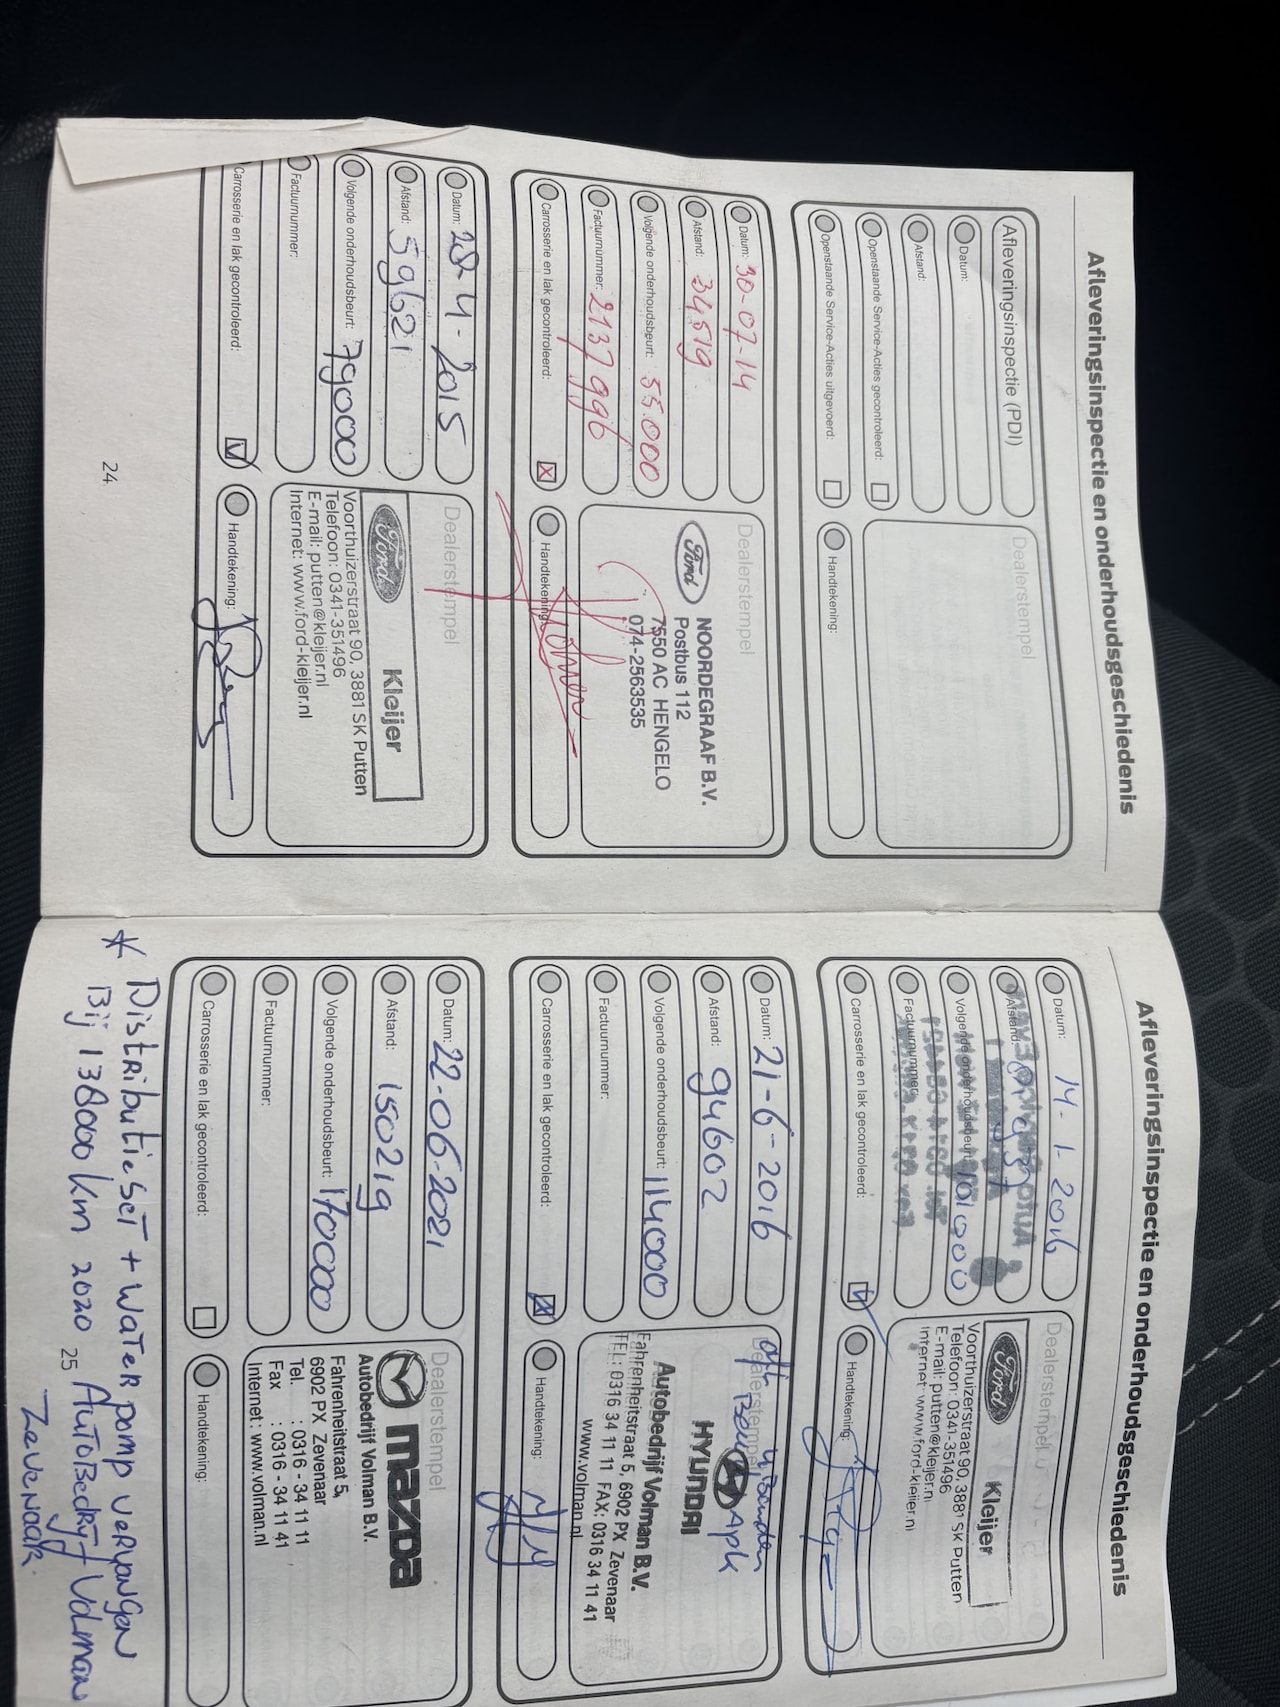 Afleveringsinspectie en onderhoudsgeschiedenis
Afleveringsinspectie (PDI)
Datum:
Afstand:
Openstaande Service-Acties gecontroleerd:
Openstaande Service-Acties uitgevoerd:
Dealerstempel
Handtekening:
Datum: 30-07-14
Afstand: 34519
Volgende onderhoudsbeurt: 55.000
Factuurnummer: 2137996
Carrosserie en lak gecontroleerd:
Dealerstempel
Ford
NOORDEGRAAF B.V.
Postbus 112
7550 AC HENGELO
074-2563535
Handtekening:
Datum: 28-4-2015
Afstand: 59621
Volgende onderhoudsbeurt: 79000
Factuurnummer:
Carrosserie en lak gecontroleerd:
Dealerstempel
Ford Kleijer
Voorthuizerstraat 90, 3881 SK Putten
Telefoon: 0341-351496
E-mail: putten@kleijer.nl
Internet: www.ford-kleijer.nl
Handtekening:
24
Afleveringsinspectie en onderhoudsgeschiedenis
Datum: 14-1-2016
Afstand:
Volgende onderhoudsbeurt: 101000
Factuurnummer:
Carrosserie en lak gecontroleerd:
Dealerstempel
Ford Kleijer
Voorthuizerstraat 90, 3881 SK Putten
Telefoon: 0341-351496
E-mail: putten@kleijer.nl
Internet: www.ford-kleijer.nl
Handtekening:
Datum: 21-6-2016
Afstand: 94602
Volgende onderhoudsbeurt: 114000
Factuurnummer:
Carrosserie en lak gecontroleerd:
Dealerstempel
4 Banden
Apk
HYUNDAI
Autobedrijf Volman B.V.
Fahrenheitstraat 5, 6902 PX Zevenaar
TEL: 0316 34 11 11 FAX: 0316 34 11 41
www.volman.nl
Handtekening:
Datum: 22-06-2021
Afstand: 150219
Volgende onderhoudsbeurt: 170000
Factuurnummer:
Carrosserie en lak gecontroleerd:
Dealerstempel
mazda
Autobedrijf Volman B.V.
Fahrenheitstraat 5,
6902 PX Zevenaar
Tel. : 0316 - 34 11 11
Fax : 0316 - 34 11 41
Internet: www.volman.nl
Handtekening:
* Distributieset + Waterpomp vervangen
Bij 138000 km 2020 Autobedrijf Volman
Zevenaar.
25